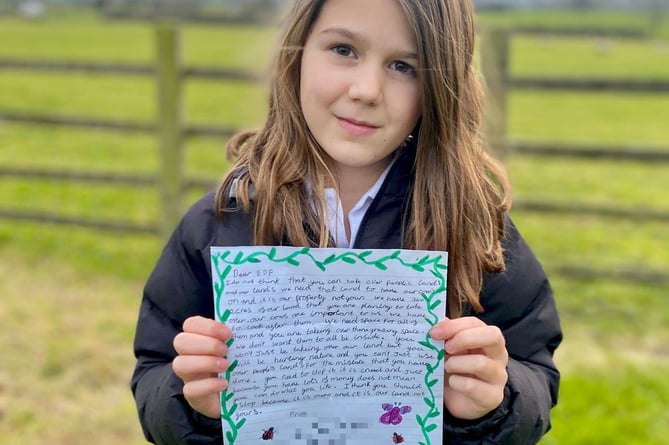 Dear EDF
I do not think that you can take over people's lands
and our land's we need that land to have our cows
on and it is our property not yours. We have
acres our land that you are planing to take
over, our cows are important to us we have
to look after them. We need space for all of
them and you are taking our thine greing space.
We don't want them to all be inside. You
won't just be taking over our land but you
will be hurting nature and you can't just use
people's land for the mistake that you have
done. you need to stop it it is cruel and just
because you have lots of money does not mean
you can do what you like. I think you should
stop because it is mean and it is our land not
your's.
From